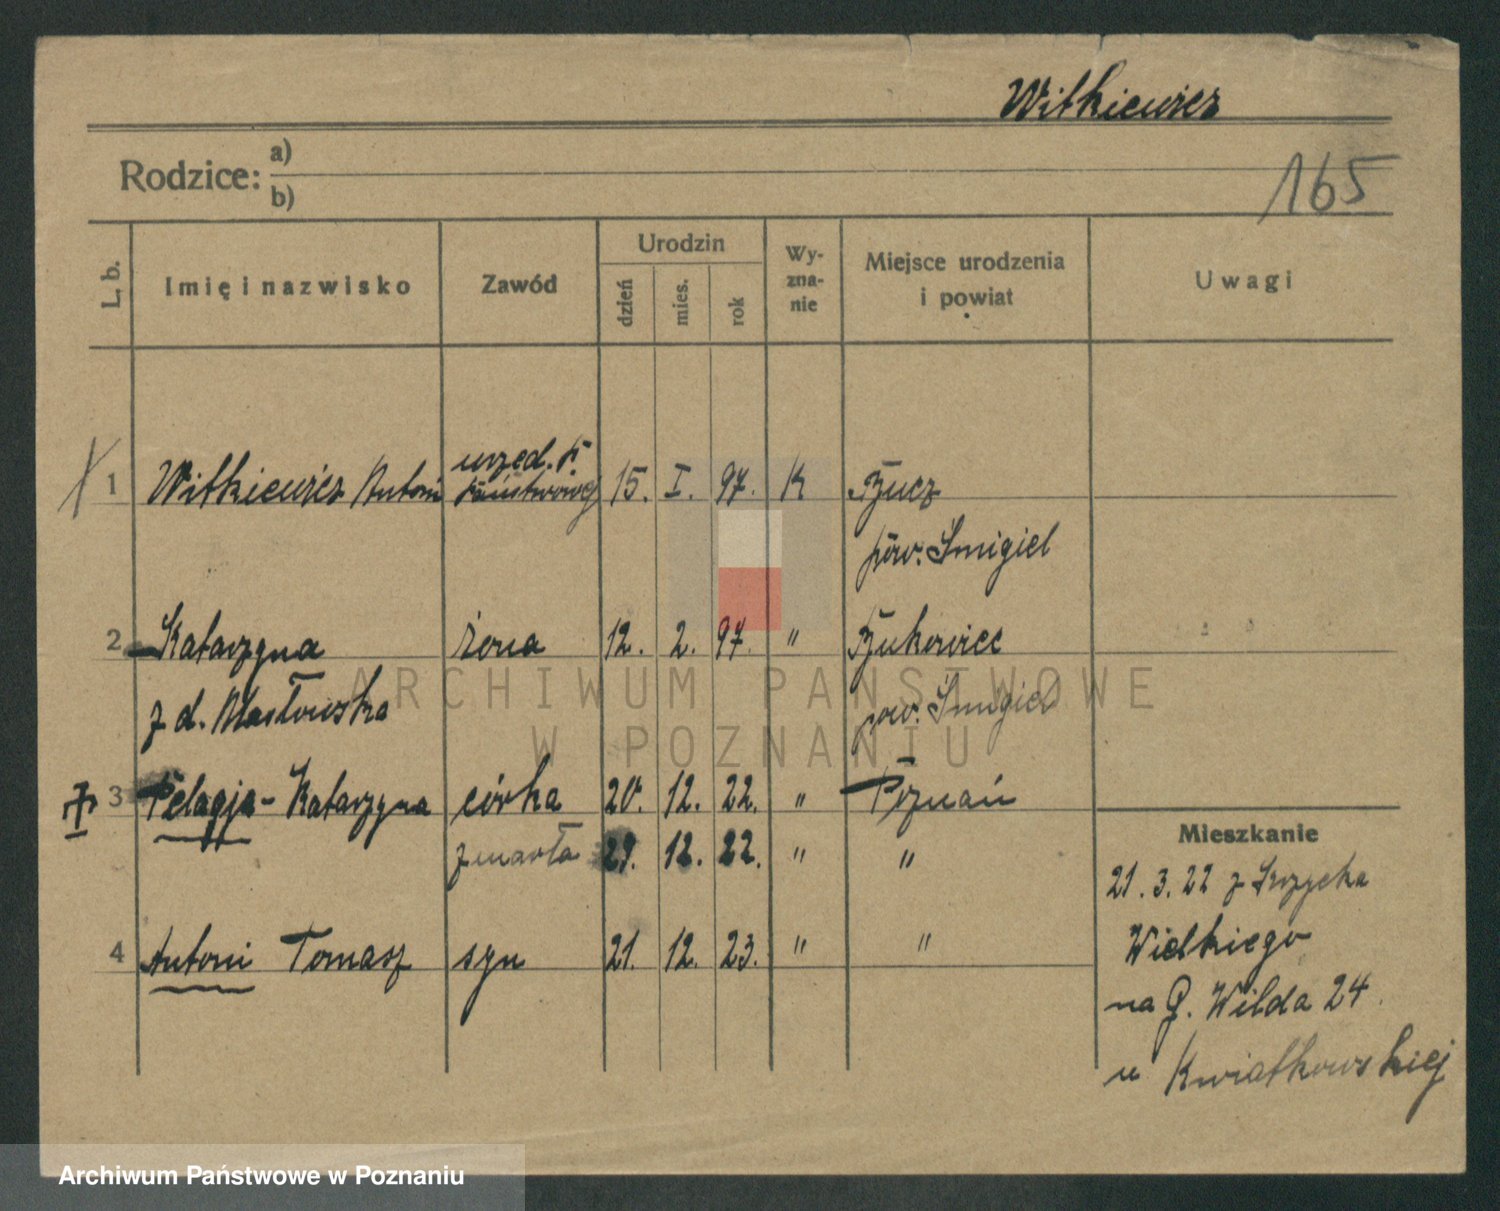 Witkiewicz
Rodzice: a)
b)
165
L. b.
Imię i nazwisko
Zawód
Urodzin
dzień
mies.
rok
Wy-
zna-
nie
Miejsce urodzenia
i powiat
Uwagi
1 Witkiewicz Antoni urzęd. p. państwowej 15. I. 97. K Bucz
pow. Śmigiel
2 Katarzyna żona 12. 2. 97. " Bukowiec
z d. Masłowska pow. Śmigiel
3 Pelagja - Katarzyna córka 20. 12. 22. " Poznań
zmarła 29. 12. 22. " "
4 Antoni Tomasz syn 21. 12. 23. " "
Mieszkanie
21. 3. 22 z
Wielkiego
na G. Wilda 24.
u Kwiatkowskiej
ARCHIWUM PAŃSTWOWE
W POZNANIU
Archiwum Państwowe w Poznaniu